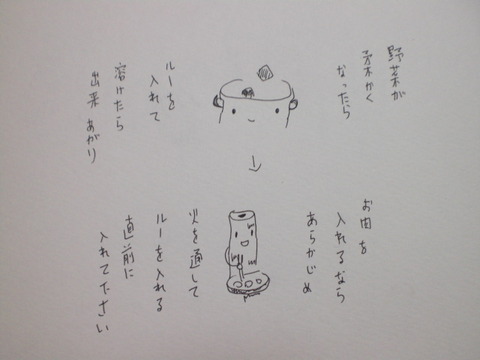 野菜が
柔かく
なったら
ルーを
入れて
溶けたら
出来あがり
お肉を
入れるなら
あらかじめ
火を通して
ルーを入れる
直前に
入れてださい